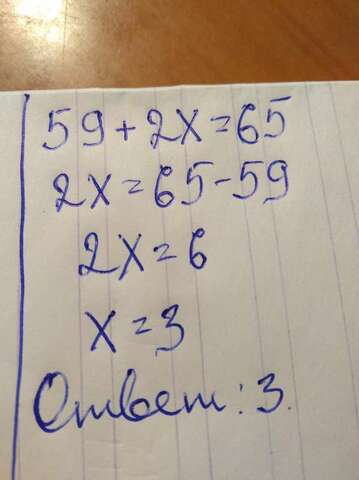 59+2x=65
2x=65-59
2x=6
x=3
Ответ: 3.